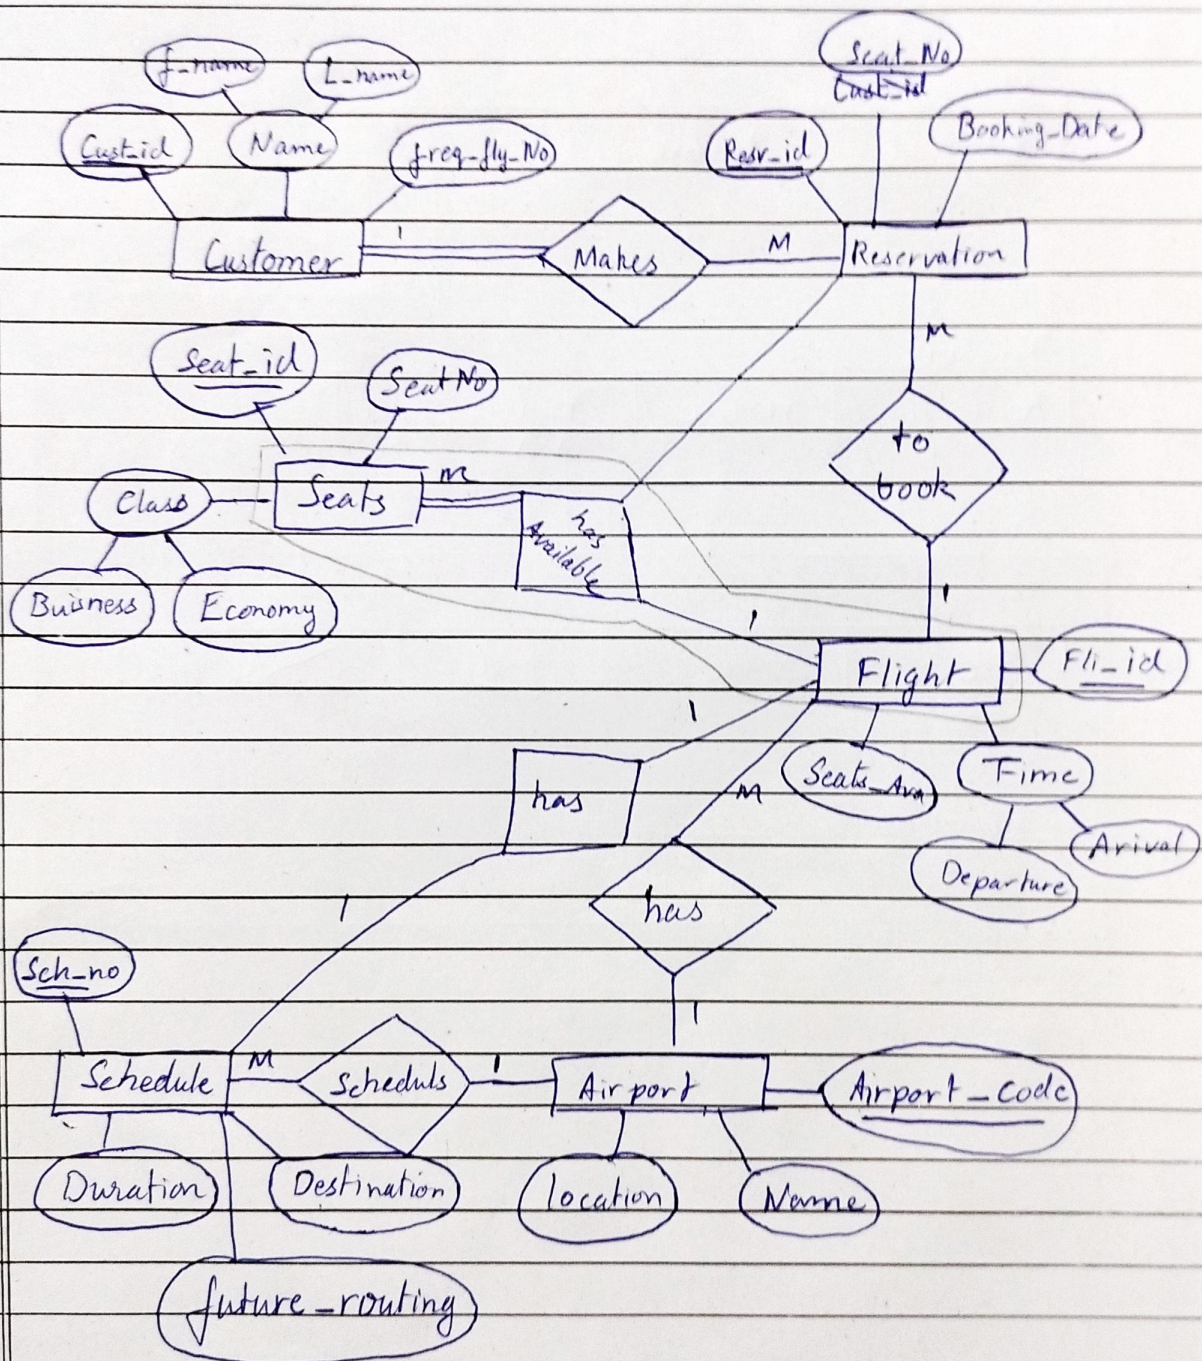 Seat_No
Cust_id
f_name
L_name
Cust_id
Name
freq_fly_No
Resr_id
Booking_Date
Customer
1
Makes
M
Reservation
M
Seat_id
Seat No
to
book
Class
Seats
M
has
Available
Buisness
Economy
1
1
Flight
Fli_id
1
has
M
Seats_Ava
Time
Departure
Arival
1
has
Sch_no
1
Schedule
M
Scheduls
1
Airport
Airport_Code
Duration
Destination
location
Name
future_routing